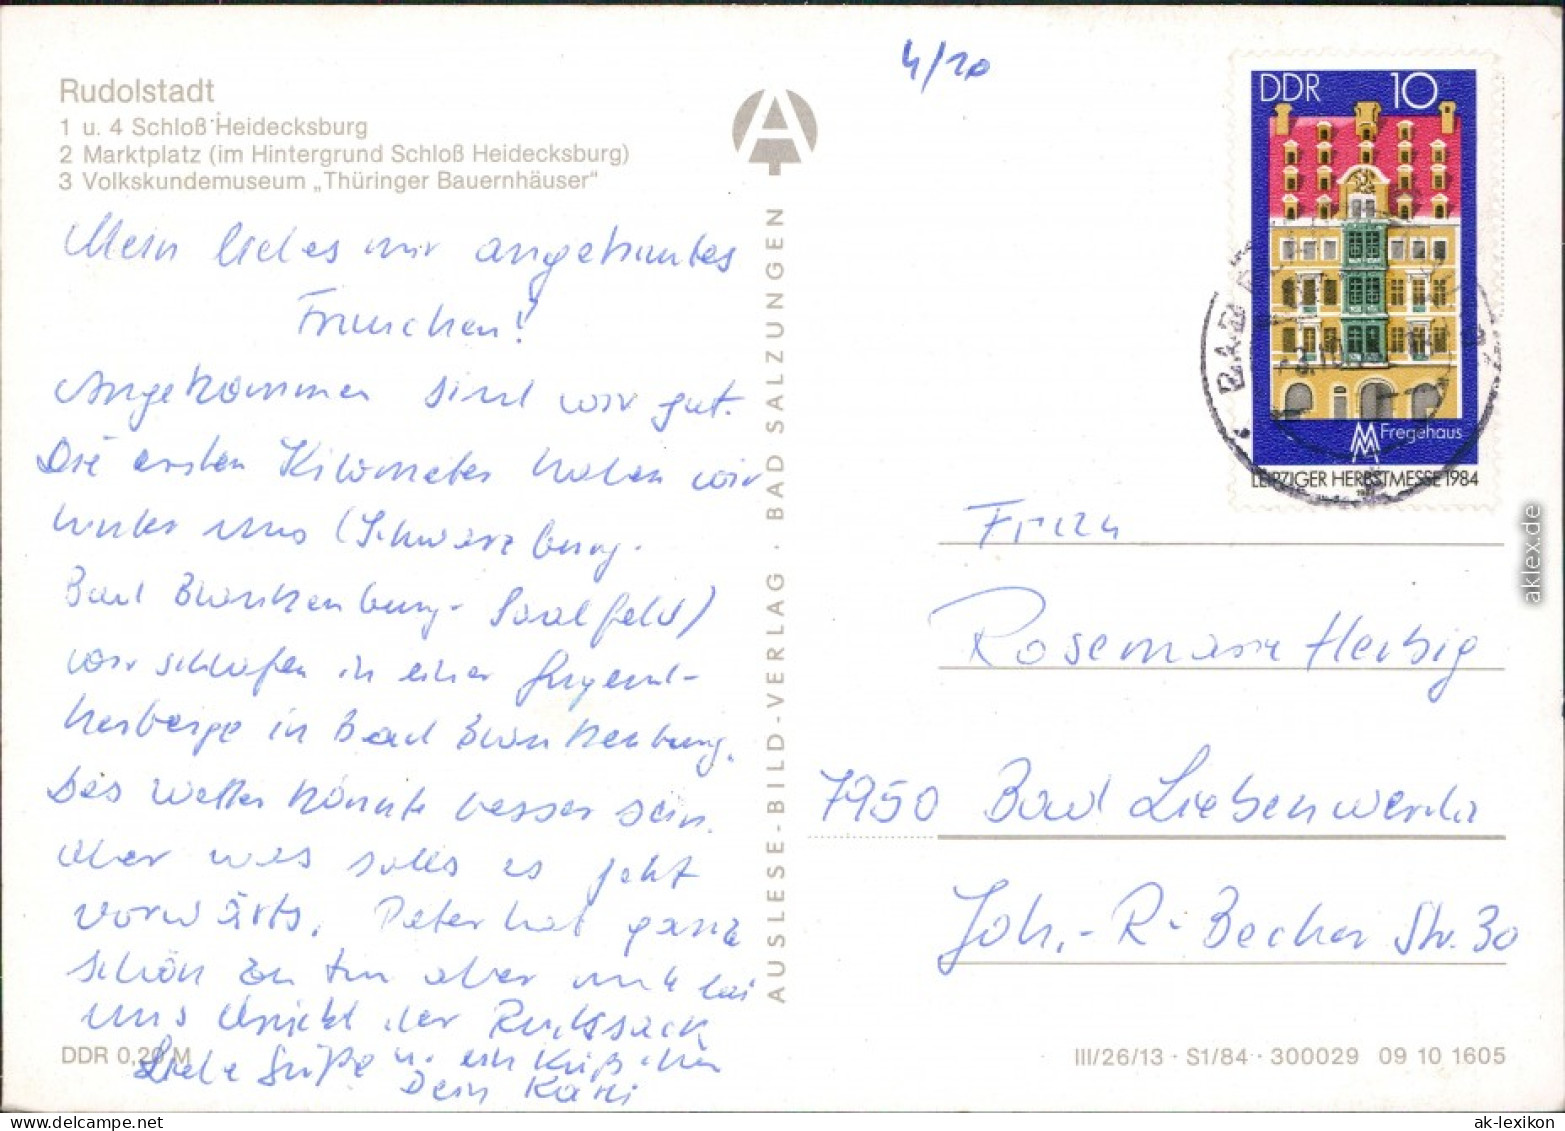 Rudolstadt
1 u. 4 Schloß Heidecksburg
2 Marktplatz (im Hintergrund Schloß Heidecksburg)
3 Volkskundemuseum „Thüringer Bauernhäuser"
Mein liebes mir angetrautes
Frauchen!
Angekommen sind wir gut.
Die ersten Kilometer haben wir
hinter uns (Schwarzburg-
Bad Blankenburg-Saalfeld)
wir schlafen in einer Jugend-
herberge in Bad Blankenburg.
Das Wetter könnte besser sein.
Aber was solls es geht
vorwärts. Peter hat ganz
schön zu tun aber auch bei
uns drückt der Rucksack
Liebe Grüße u. ein Küßchen
Dein Karli
DDR 0,20 M
AUSLESE-BILD-VERLAG · BAD SALZUNGEN
4/10
DDR 10
MM Fregehaus
LEIPZIGER HERBSTMESSE 1984
Frau
Rosemarie Herbig
7950 Bad Liebenwerda
Joh.-R-Becher Str. 30
III/26/13 · S1/84 · 300029 09 10 1605
aklex.de
ak-lexikon